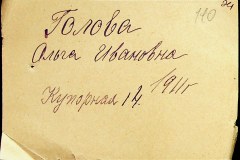 110
Голова
Ольга Ивановна
Купорная 14. 1911г